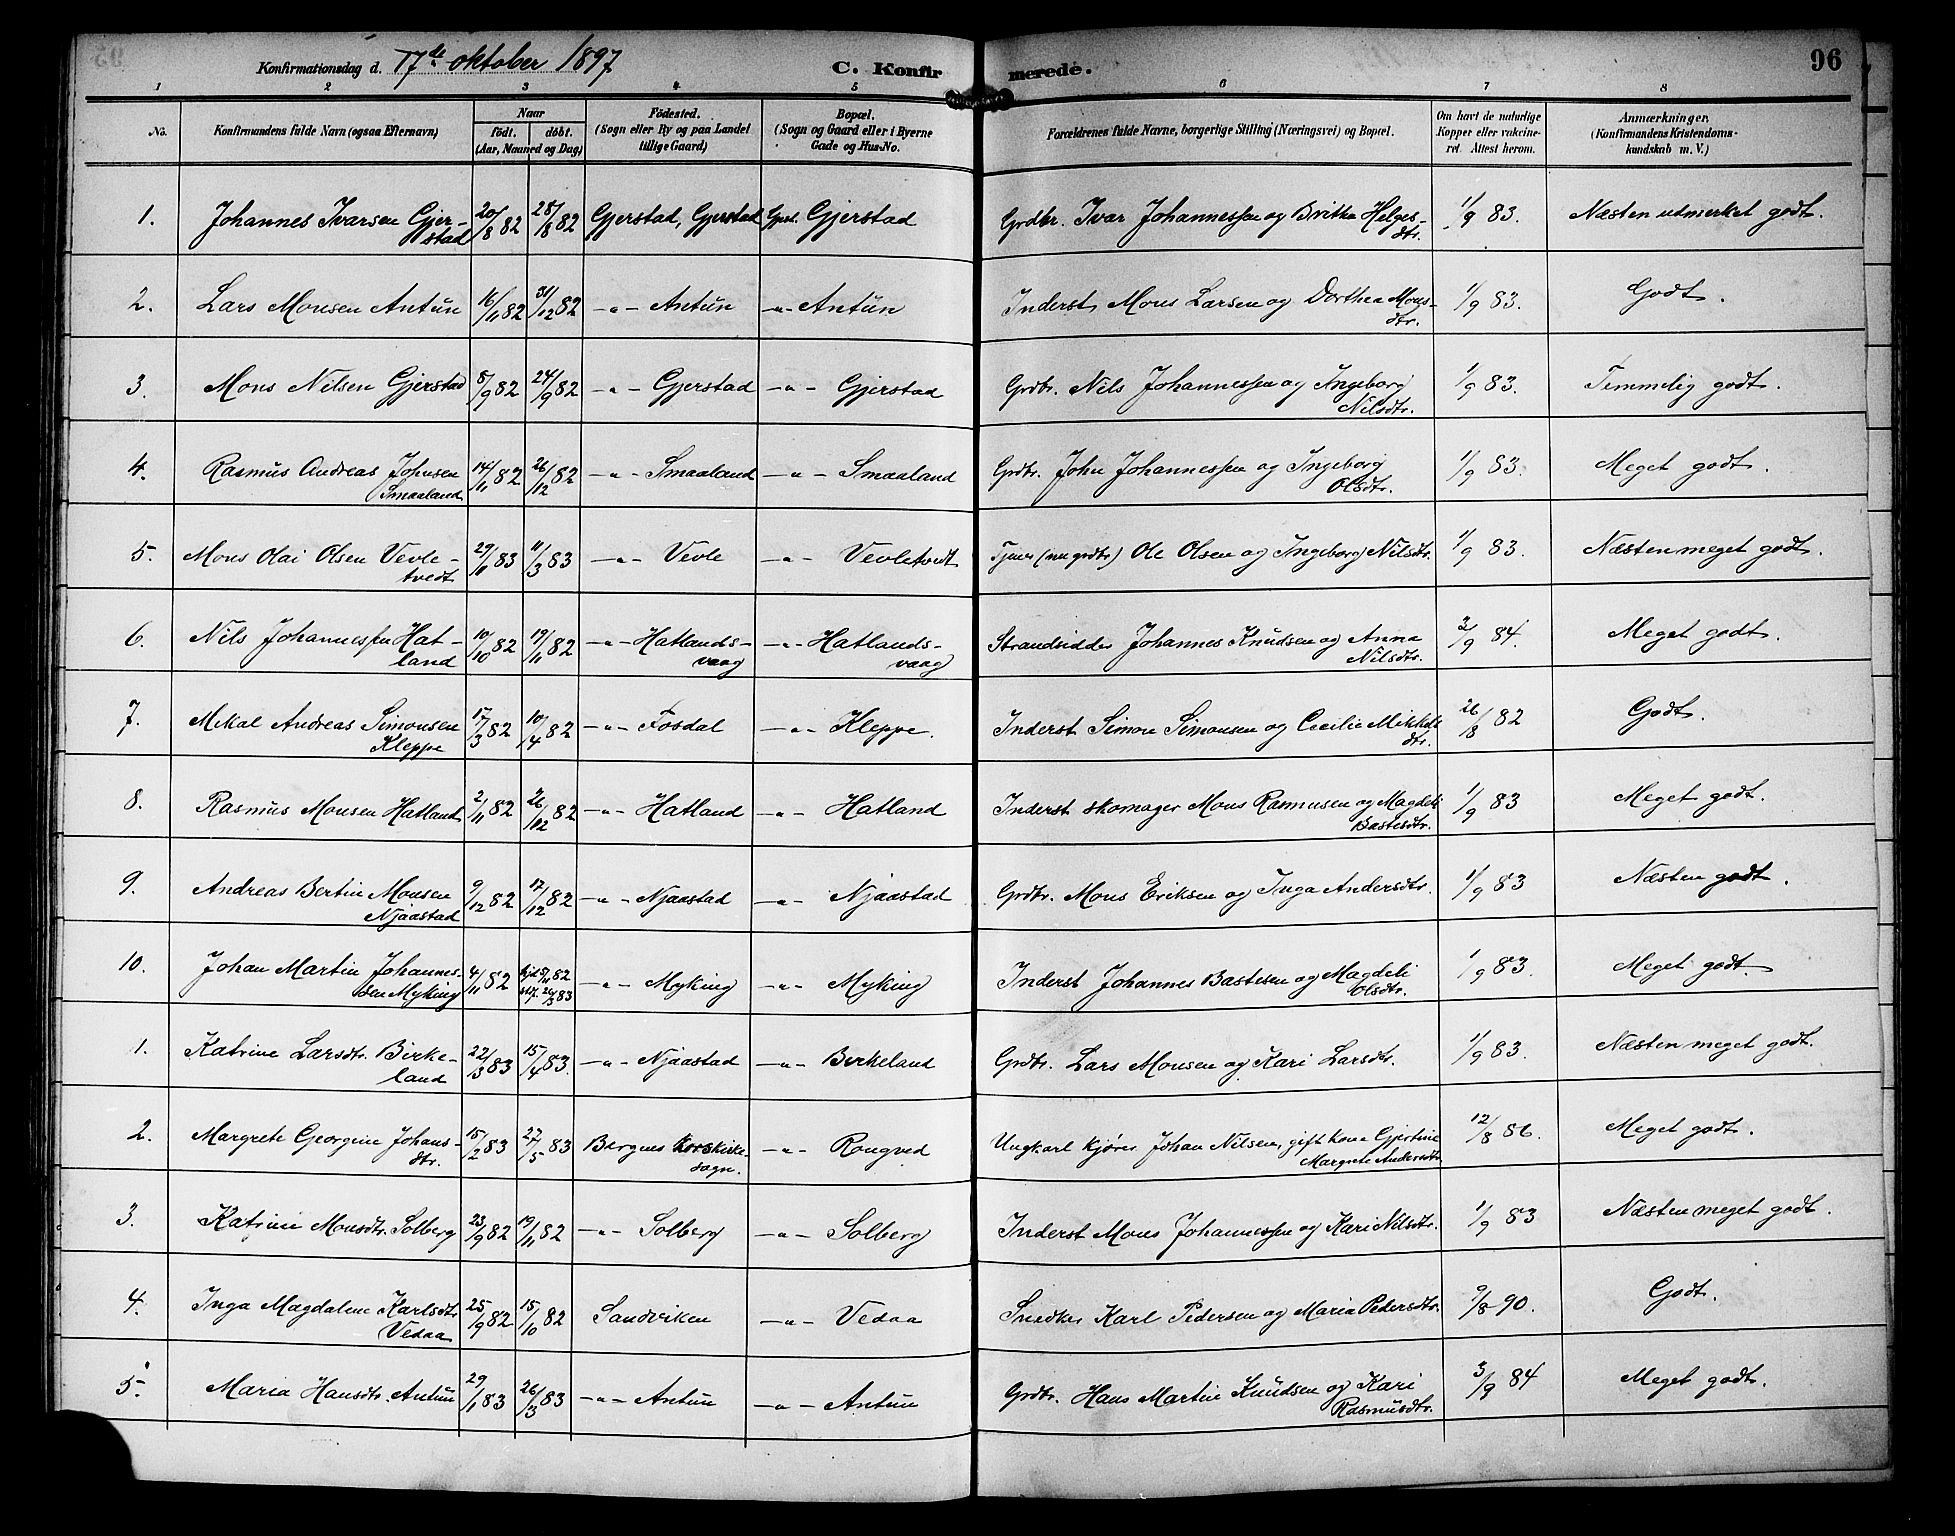 Konfirmationsdag d. 17de oktober 1897 C. Konfirmerede. 96
1 2 3 4 5 6 7 8
No. Konfirmandens fulde Navn (ogsaa Efternavn) Naar født. døbt. (Aar, Maaned og Dag) Fødested. (Sogn eller By og paa Landet tillige Gaard) Bopæl. (Sogn og Gaard eller i Byerne Gade og Hus-No. Forældrenes fulde Navne, borgerlige Stilling (Næringsvei) og Bopæl. Om havt de naturlige Kopper eller vakcineret. Attest herom. Anmærkninger. (Konfirmandens Kristendomskundskab m. V.)
1. Johannes Ivarsen Gjerstad 20/8 82 28/8 82 Gjerstad, Gjerstad Gjerst. Gjerstad Grdbr. Ivar Johannessen og Britha Helgesdtr. 1/9 83. Næsten udmerket godt.
2. Lars Monsen Antun 16/11 82 31/12 82 —"— Antun —"— Antun Inderst Mons Larsen og Dorthea Monsdtr. 1/9 83. Godt.
3. Mons Nilsen Gjerstad 8/9 82 24/9 82 —"— Gjerstad —"— Gjerstad Grdbr. Nils Johannessen og Ingeborg Nilsdtr. 1/9 83. Temmelig godt.
4. Rasmus Andreas Johnsen Smaaland 14/11 82 26/12 82 —"— Smaaland —"— Smaaland Grdbr. John Johannessen og Ingeborg Olsdtr. 1/9 83. Meget godt.
5. Mons Olai Olsen Vevletvedt 29/1 83 11/3 83 —"— Vevle —"— Vevletvedt Tjener (nu grdbr) Ole Olsen og Ingeborg Nilsdtr. 1/9 83. Næsten meget godt.
6. Nils Johannessen Hatland 10/10 82 19/11 82 —"— Hatlandsvaag —"— Hatlandsvaag Strandsidder Johannes Knudsen og Anna Nilsdtr. 3/9 84. Meget godt.
7. Mikal Andreas Simonsen Kleppe 17/3 82 10/4 82 —"— Fosdal —"— Kleppe. Inderst Simon Simonsen og Cecilie Mikkelsdtr. 26/8 82 Godt.
8. Rasmus Monsen Hatland 2/11 82 26/12 82 —"— Hatland —"— Hatland Inderst skomager Mons Rasmusen og Magdeli Bastesdtr. 1/9 83 Meget godt.
9. Andreas Bertin Monsen Njaastad 9/12 82 17/12 82 —"— Njaastad —"— Njaastad Grdbr. Mons Eriksen og Inga Andersdtr. 1/9 83 Næsten godt.
10. Johan Martin Johannessen Myking 4/11 82 hjd 5/11 82 stf. 26/3 83 —"— Myking —"— Myking Inderst Johannes Bastesen og Magdeli Olsdtr. 1/9 83. Meget godt
1. Katrine Larsdtr. Birkeland 22/3 83 15/4 83. —"— Njaastad —"— Birkeland Grdbr. Lars Monsen og Kari Larsdtr. 1/9 83. Næsten meget godt.
2. Margrete Georgine Johansdtr. 15/2 83 27/5 83 Bergens korskirkesogn. —"— Rongved Ungkarl kjører Johan Nilsen, gift kone Gjertine Margrete Andersdtr 12/8 86. Meget godt.
3. Katrine Monsdtr. Solberg 23/9 82 19/11 82 —"— Solberg —"— Solberg Inderst Mons Johannessen og Kari Nilsdtr. 1/9 83 Næsten meget godt.
4. Inga Magdalene Karlsdtr Vedaa 25/9 82 15/10 82 Sandviken —"— Vedaa Snedker Karl Pedersen og Maria Pedersdtr. 9/8 90. Godt.
5. Maria Hansdtr. Antun 29/1 83 26/3 83 —"— Antun —"— Antun Grdbr. Hans Martin Knudsen og Kari Rasmusdtr. 3/9 84 Meget godt.